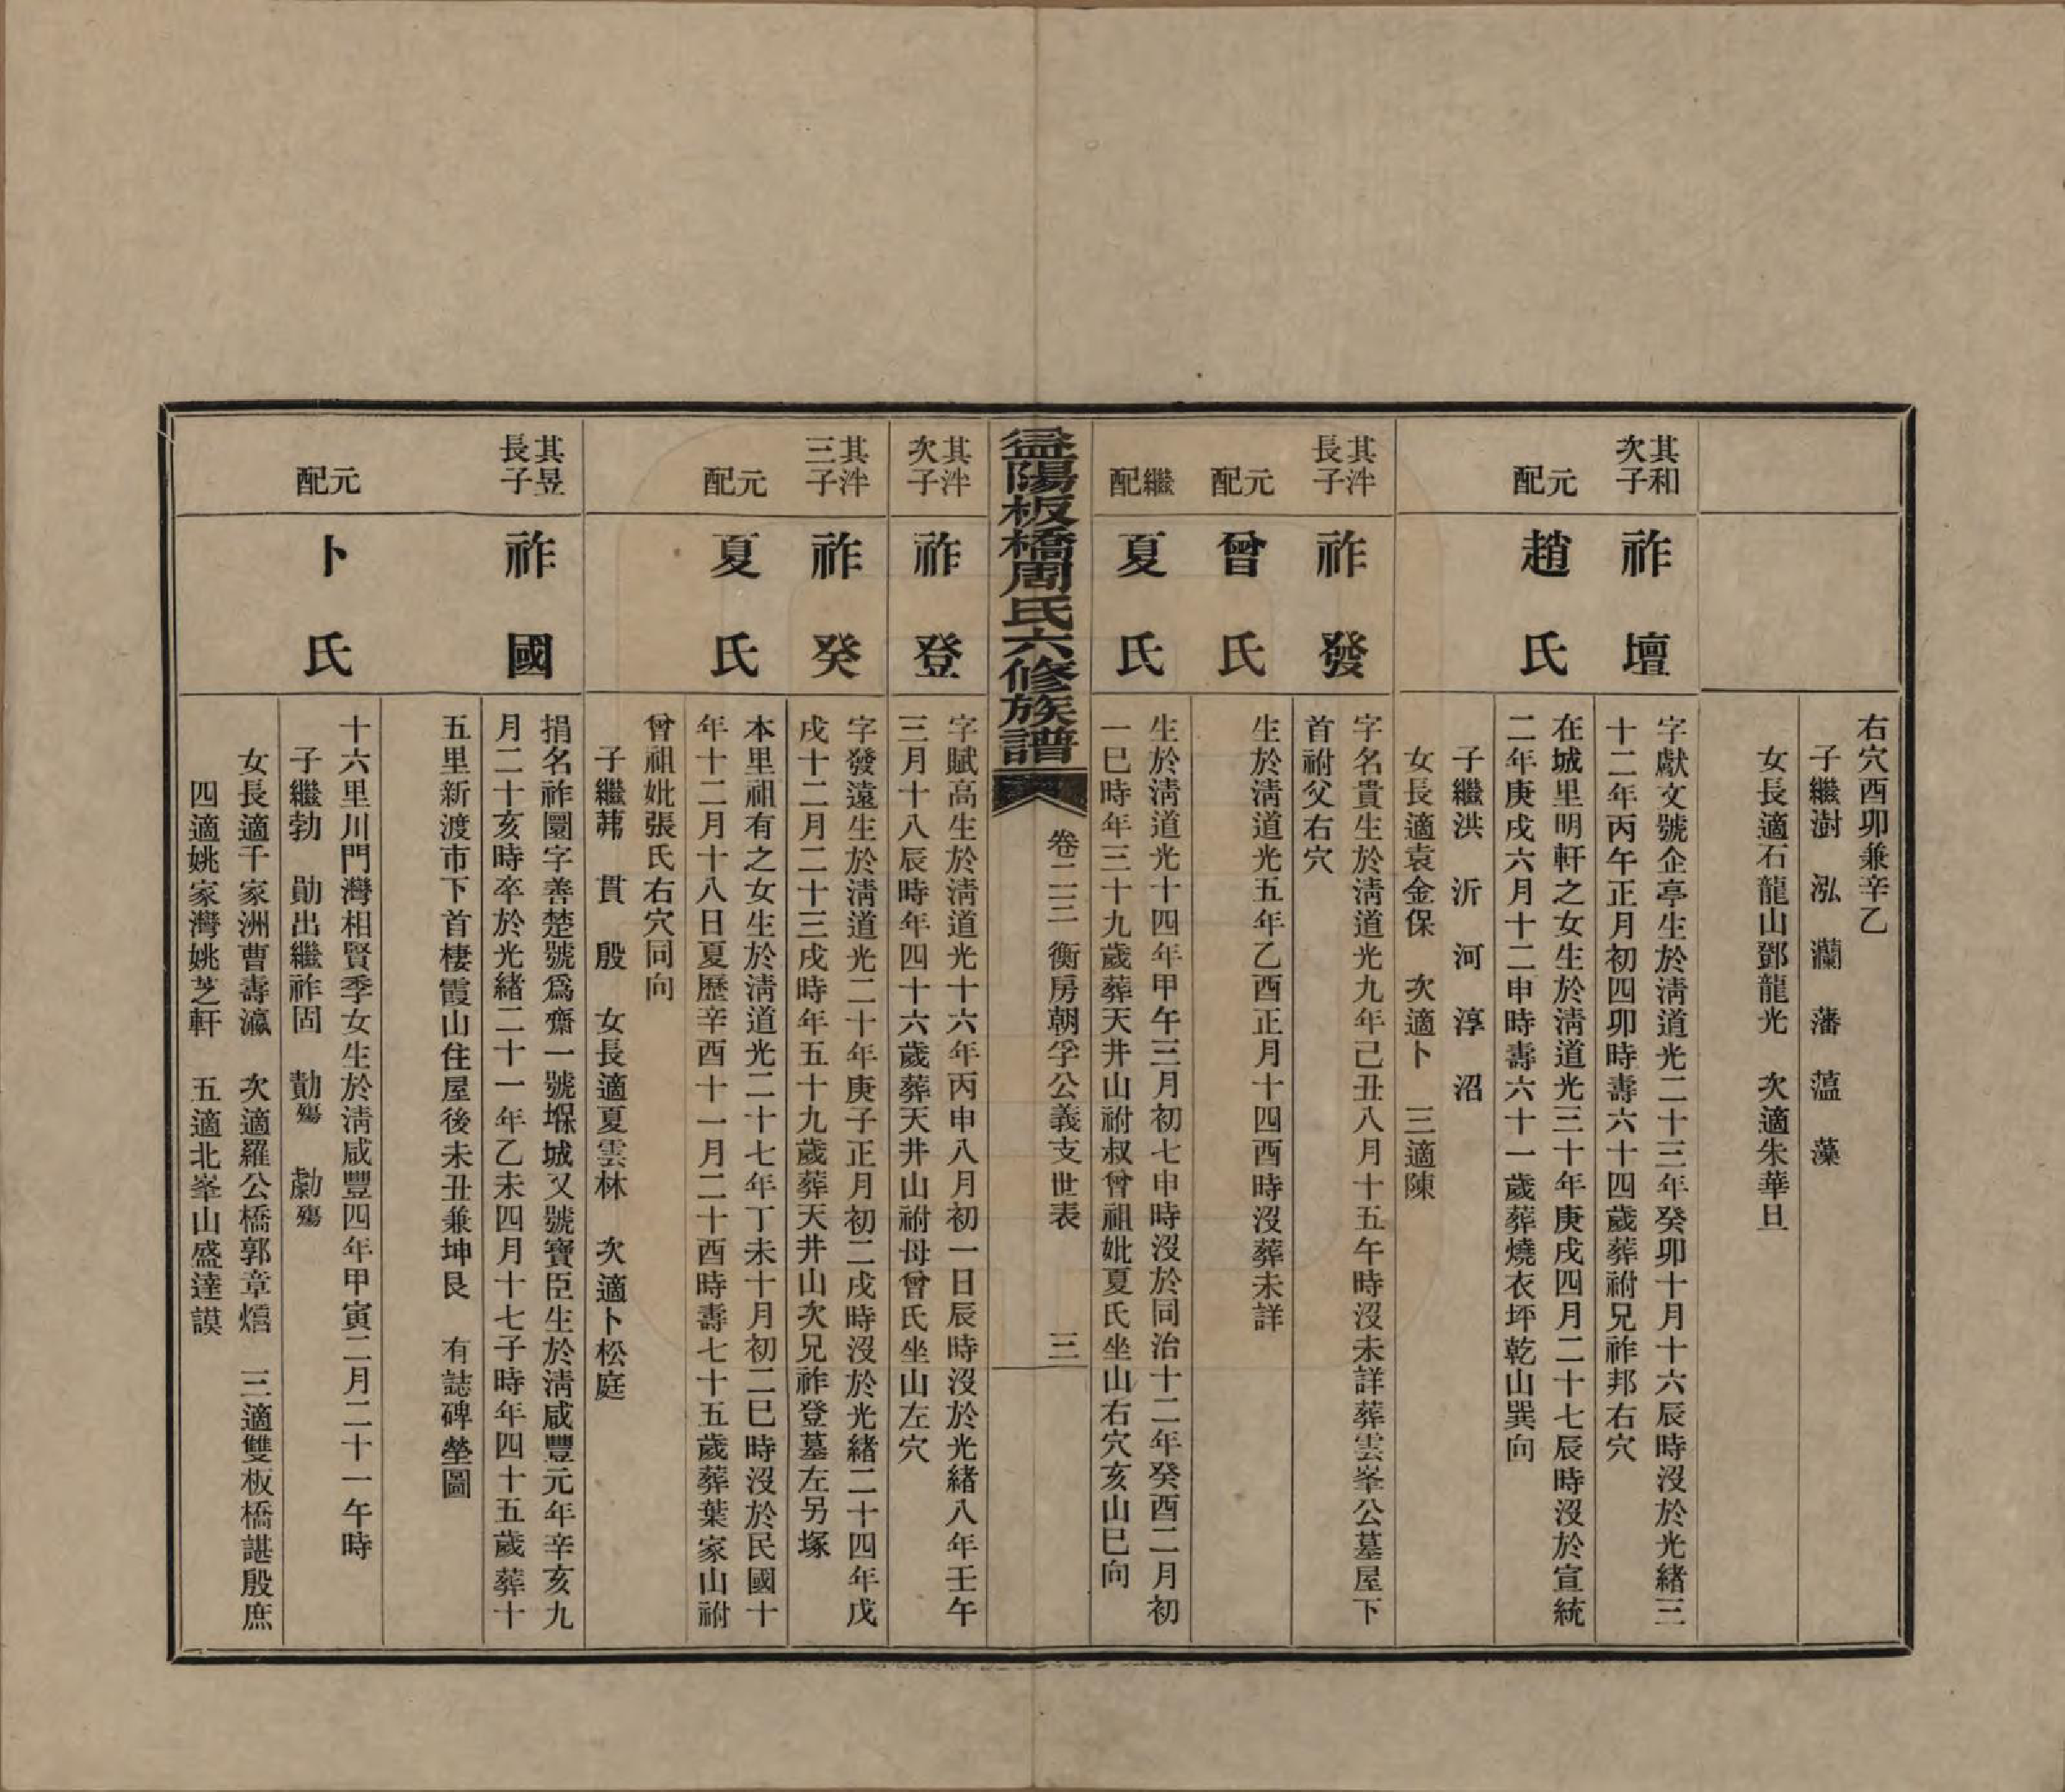 右穴酉卯兼辛乙
子繼澍 泓 灡 藩 薀 藻
女長適石龍山鄧龍光 次適朱華旦
其和
次子
祚壇
字獻文號企亭生於淸道光二十三年癸卯十月十六辰時沒於光緒三
十二年丙午正月初四卯時壽六十四歲葬祔兄祚邦右穴
元配
趙氏
在城里明軒之女生於淸道光三十年庚戌四月二十七辰時沒於宣統
二年庚戌六月十二申時壽六十一歲葬燒衣坪乾山巽向
子繼洪 沂 河 淳 沼
女長適袁金保 次適卜 三適陳
其泮
長子
祚發
字名貴生於淸道光九年己丑八月十五午時沒未詳葬雲峯公墓屋下
首祔父右穴
元配
曾氏
生於淸道光五年乙酉正月十四酉時沒葬未詳
繼配
夏氏
生於淸道光十四年甲午三月初七申時沒於同治十二年癸酉二月初
一巳時年三十九歲葬天井山祔叔曾祖妣夏氏坐山右穴亥山巳向
益陽板橋周氏六修族譜
卷二三 衡房朝孚公義支世表 三
其泮
次子
祚登
字賦高生於淸道光十六年丙申八月初一日辰時沒於光緒八年壬午
三月十八辰時年四十六歲葬天井山祔母曾氏坐山左穴
其泮
三子
祚癸
字發遠生於淸道光二十年庚子正月初二戌時沒於光緒二十四年戊
戌十二月二十三戌時年五十九歲葬天井山次兄祚登墓左另塚
元配
夏氏
本里祖有之女生於淸道光二十七年丁未十月初二巳時沒於民國十
年十二月十八日夏歷辛酉十一月二十酉時壽七十五歲葬葉家山祔
曾祖妣張氏右穴同向
子繼茀 貫 殷 女長適夏雲林 次適卜松庭
其昱
長子
祚國
捐名祚圜字善楚號爲齋一號堢城又號寶臣生於淸咸豐元年辛亥九
月二十亥時卒於光緒二十一年乙未四月十七子時年四十五歲葬十
五里新渡市下首棲霞山住屋後未丑兼坤艮 有誌碑塋圖
元配
卜氏
十六里川門灣相賢季女生於淸咸豐四年甲寅二月二十一午時
子繼勃 勛出繼祚固 勣殤 勮殤
女長適千家洲曹壽瀛 次適羅公橋郭章熺 三適雙板橋諶殷庶
四適姚家灣姚芝軒 五適北峯山盛達謨